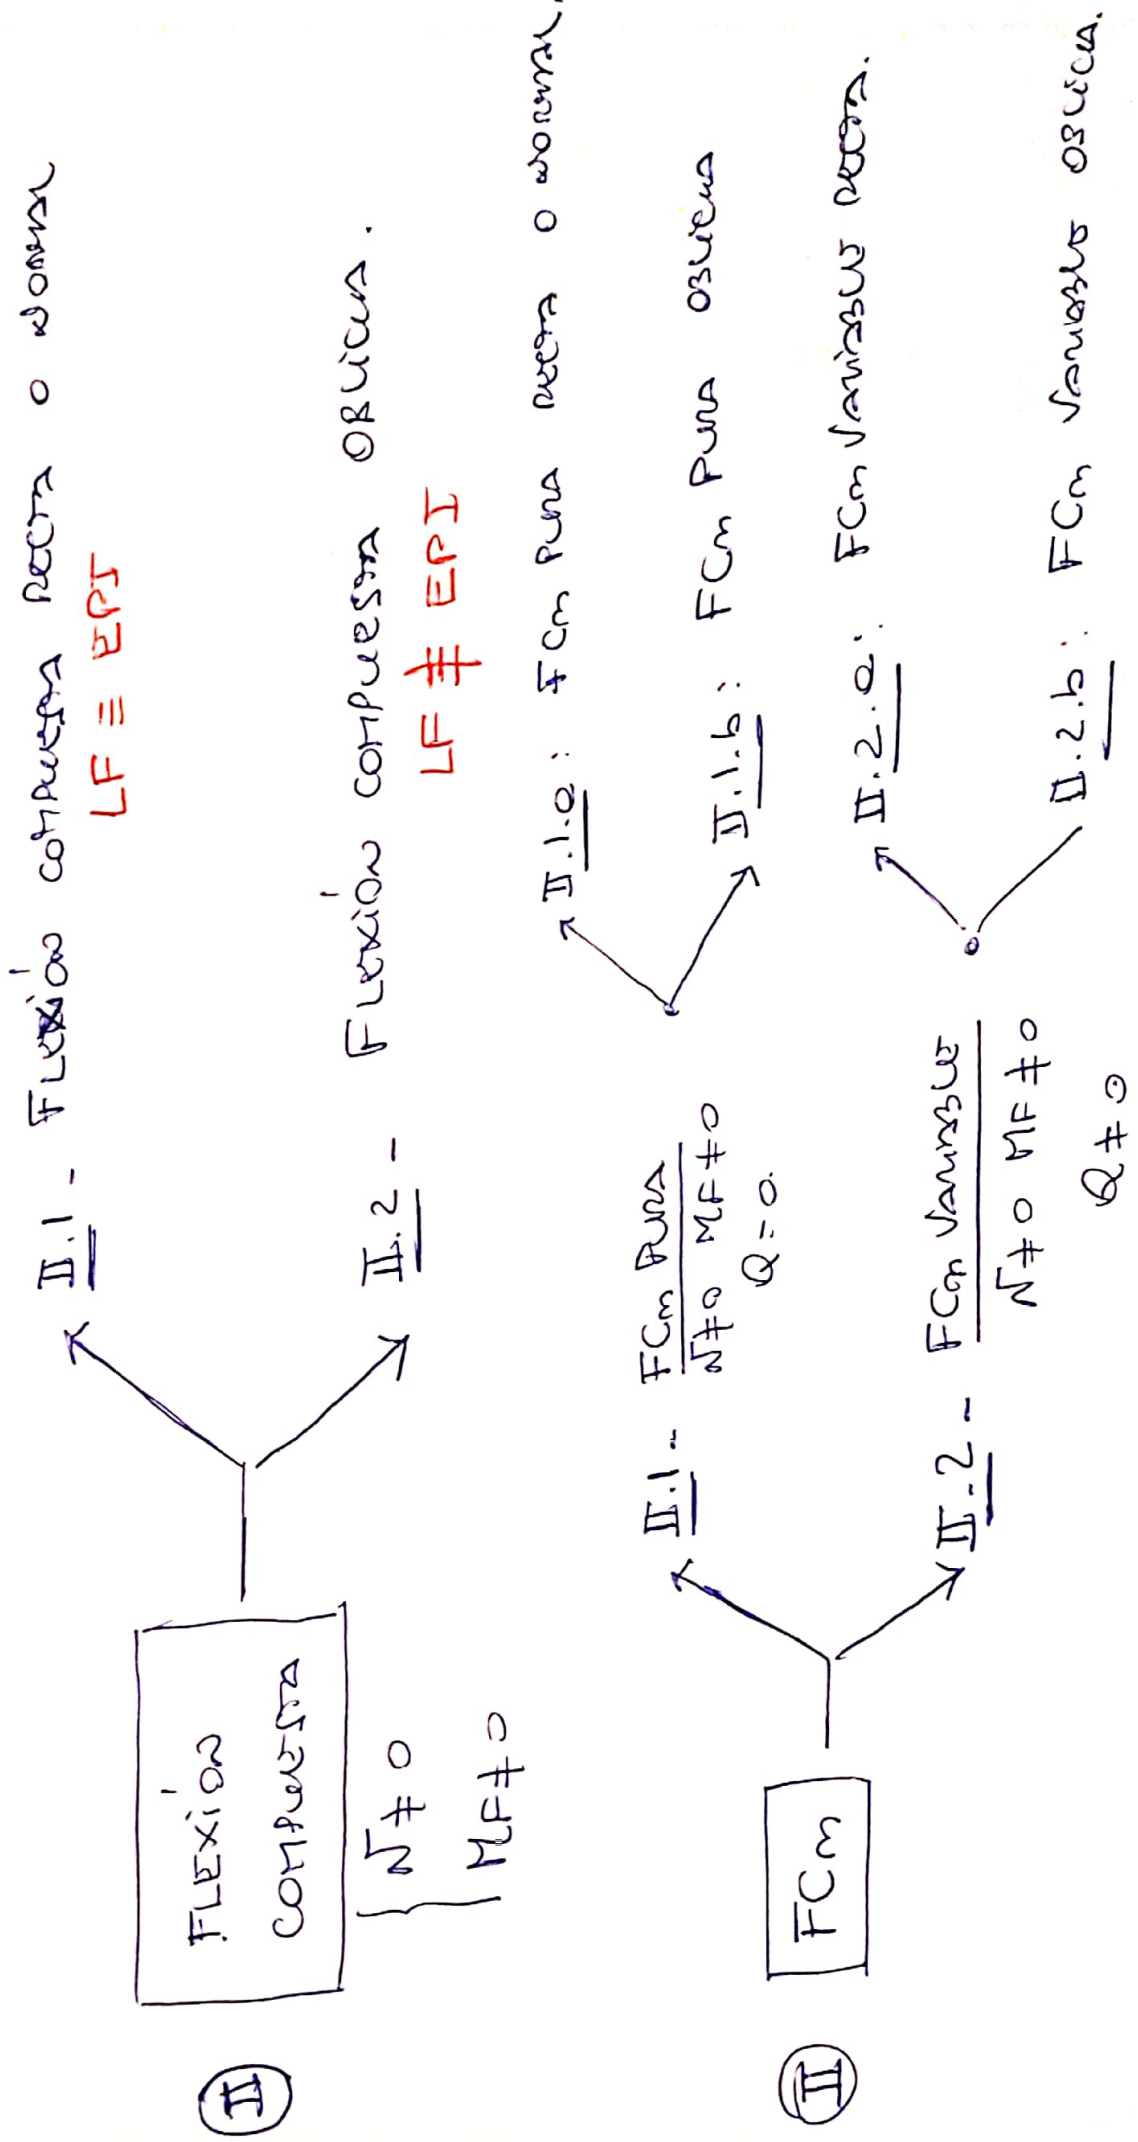 II
FLEXIÓN
COMPUESTA
N ≠ 0
MF ≠ 0
II.1 - FLEXIÓN COMPUESTA RECTA O NORMAL
LF ≡ EPI
II.2 - FLEXIÓN COMPUESTA OBLICUA.
LF ≢ EPI
II
FCm
II.1 - FCm PURA
N ≠ 0 MF ≠ 0
Q = 0.
II.1.a : FCm PURA RECTA O NORMAL.
II.1.b : FCm PURA OBLICUA
II.2 - FCm VARIABLE
N ≠ 0 MF ≠ 0
Q ≠ 0
II.2.a : FCm VARIABLE RECTA.
II.2.b : FCm VARIABLE OBLICUA.